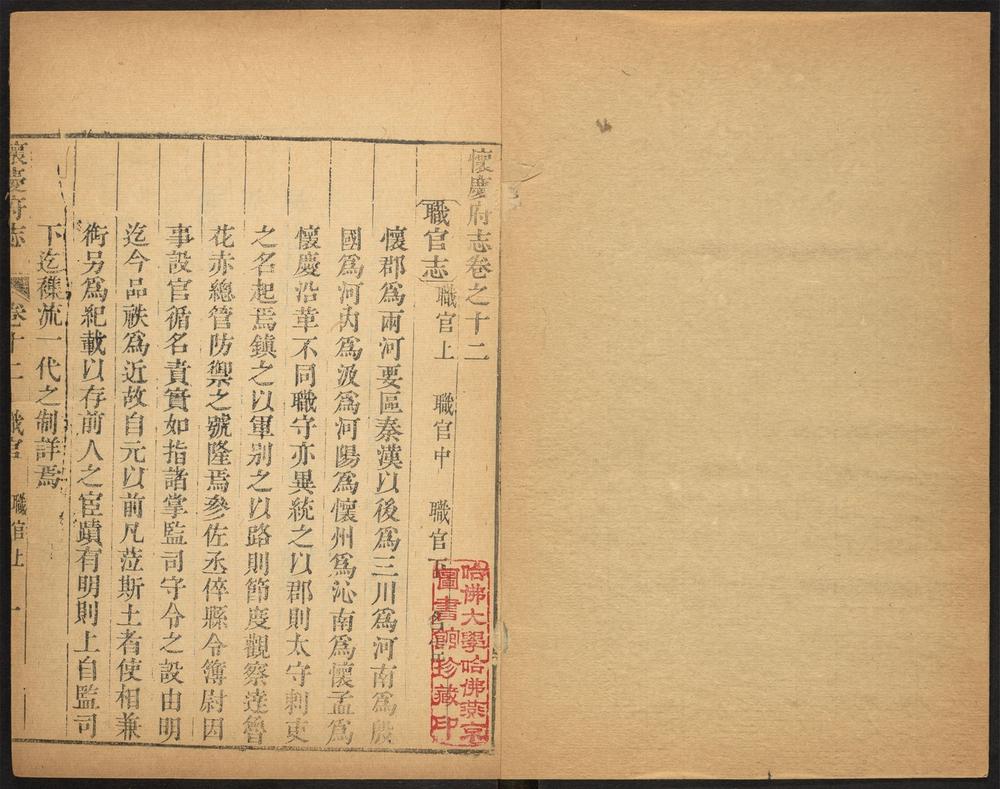 懷慶府志卷之十二
職官志 職官上 職官中 職官下
懷郡爲兩河要區秦漢以後爲三川爲河南爲殷
國爲河內爲汲爲河陽爲懷州爲沁南爲懷孟爲
懷慶沿革不同職守亦異統之以郡則太守刺吏
之名起焉鎮之以軍别之以路則節度觀察達魯
花赤總管防禦之號隆焉參佐丞倅縣令簿尉因
事設官循名責實如指諸掌監司守令之設由明
迄今品秩爲近故自元以前凡莅斯土者使相兼
銜另爲紀載以存前人之宦蹟有明則上自監司
下迄雜流一代之制詳焉
懷慶府志 卷十二 職官 職官上 一
哈佛大學哈佛燕京
圖書館珍藏印